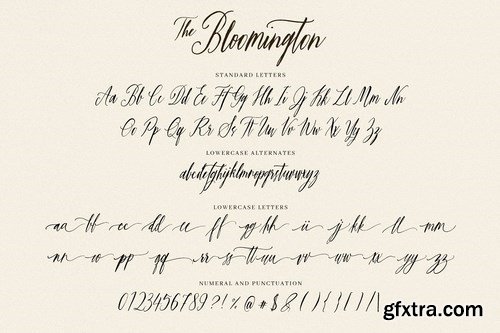 The Bloomington
STANDARD LETTERS
Aa Bb Cc Dd Ee Ff Gg Hh Ii Jj Kk Ll Mm Nn
Oo Pp Qq Rr Ss Tt Uu Vv Ww Xx Yy Zz
LOWERCASE ALTERNATES
abcdefghijklmnopqrstuvwxyz
LOWERCASE LETTERS
aa bb cc dd ee ff gg hh ii jj kk ll mm
nn oo pp qq rr ss tt uu vv ww xx yy zz
NUMERAL AND PUNCTUATION
0123456789?!%@#$&(){}[]/\|
gfxtra.com